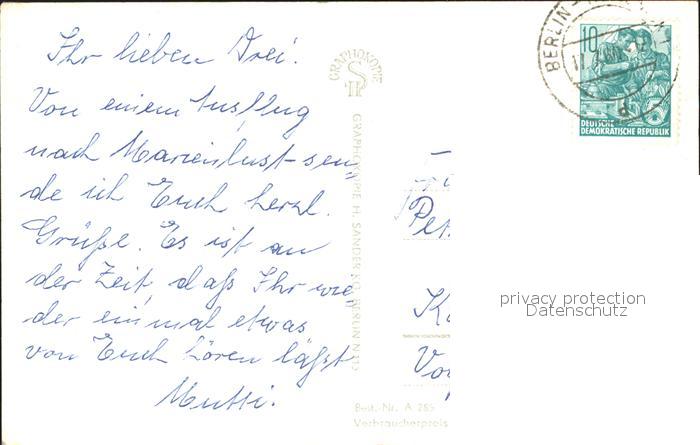 Ihr lieben Drei.
Von einem Ausflug
nach Marienlust sen-
de ich Euch herzl.
Grüße. Es ist an
der Zeit, daß Ihr wie-
der einmal etwas
von Euch hören läßt
Mutti.
GRAPHOKOPIE
H S
GRAPHOKOPIE H. SANDER KG. BERLIN
Best.-Nr. A 285
Verbraucherpreis
BERLIN
10
5
DEUTSCHE
DEMOKRATISCHE REPUBLIK
d
Pet
K
Vo
privacy protection
Datenschutz